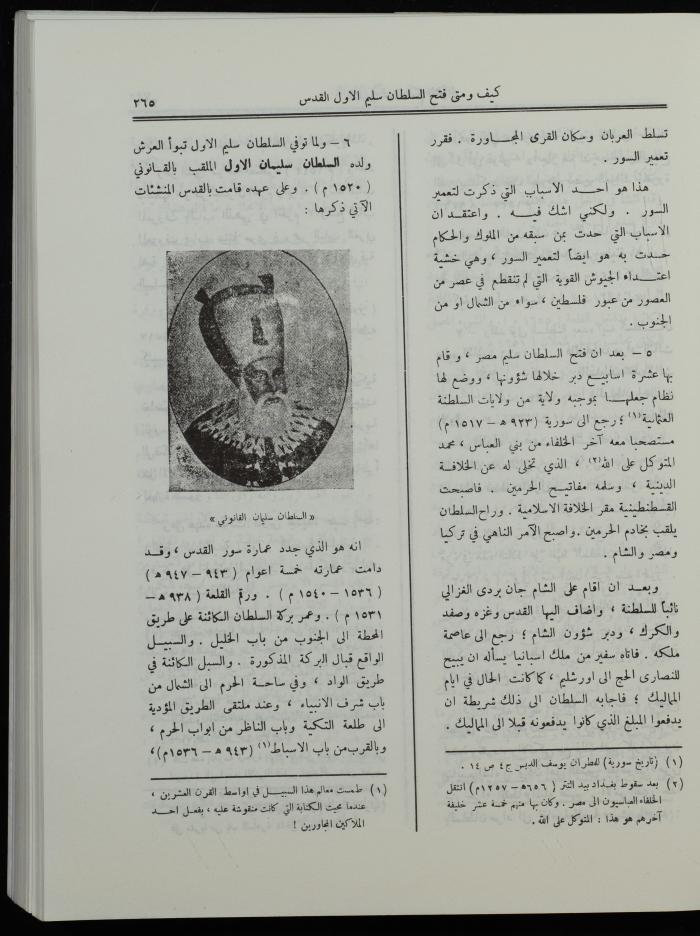 كيف ومتى فتح السلطان سليم الاول القدس
٢٦٥
تسلط العربان وسكان القرى المجاورة . فقرر
تعمير السور .
هذا هو احد الاسباب التي ذكرت لتعمير
السور . ولكني اشك فيه . واعتقد ان
الاسباب التي حدت بمن سبقه من الملوك والحكام
حدت به هو ايضاً لتعمير السور ، وهي خشية
اعتداء الجيوش القوية التي لم تنقطع في عصر من
العصور من عبور فلسطين ، سواء من الشمال او من
الجنوب .
٥ – بعد ان فتح السلطان سليم مصر ، و قام
بها عشرة اسابيع دبر خلالها شؤونها ، ووضع لها
نظام جعلها بموجبه ولاية من ولايات السلطنة
العثمانية(١) ؛ رجع الى سورية (٩٢٣ هـ – ١٥١٧ م)
مستصحبا معه آخر الخلفاء من بني العباس ، محمد
المتوكل على الله(٢) ، الذي تخلى له عن الخلافة
الدينية ، وسلمه مفاتيح الحرمين . فاصبحت
القسطنطينية مقر الخلافة الاسلامية . وراح السلطان
يلقب بخادم الحرمين . واصبح الآمر الناهي في تركيا
ومصر والشام .
وبعد ان اقام على الشام جان بردى الغزالي
نائباً للسلطنة ، واضاف اليها القدس وغزه وصفد
والكرك ، ودبر شؤون الشام ؛ رجع الى عاصمة
ملكه . فاتاه سفير من ملك اسبانيا يسأله ان يبيح
للنصارى الحج الى اورشليم ، كما كانت الحال في ايام
المماليك ؛ فاجابه السلطان الى ذلك شريطة ان
يدفعوا المبلغ الذي كانوا يدفعونه قبلا الى المماليك .
(١) (تاريخ سورية) للمطران يوسف الدبس ج٤ ص ١٤ .
(٢) بعد سقوط بغداد بيد التتر (٦٥٦ هـ – ١٢٥٧ م) انتقل
الخلفاء العباسيون الى مصر . وكان بها منهم خمسة عشر خليفة
آخرهم هو هذا : المتوكل على الله .
٦ – ولما توفي السلطان سليم الاول تبوأ العرش
ولده السلطان سليمان الاول الملقب بالقانوني
( ١٥٢٠ م ) . وعلى عهده قامت بالقدس المنشئات
الآتي ذكرها :
« السلطان سليمان القانوني »
انه هو الذي جدد عمارة سور القدس ، وقد
دامت عمارته خمسة اعوام ( ٩٤٣ – ٩٤٧ هـ )
( ١٥٣٦ – ١٥٤٠ م ) . ورمم القلعة ( ٩٣٨ هـ –
١٥٣١ م ) . وعمر بركة السلطان الكائنة على طريق
المحطة الى الجنوب من باب الخليل . والسبيل
الواقع قبال البركة المذكورة . والسبل الكائنة في
طريق الواد ، وفي ساحة الحرم الى الشمال من
باب شرف الانبياء ، وعند ملتقى الطريق المؤدية
الى طلعة التكية وباب الناظر من ابواب الحرم ،
وبالقرب من باب الاسباط(١) (٩٤٣ هـ – ١٥٣٦ م)،
(١) طمست معالم هذا السبيل في اواسط القرن العشرين ،
عندما محيت الكتابة التي كانت منقوشة عليه ، بفعل احد
الملاكين المجاورين !